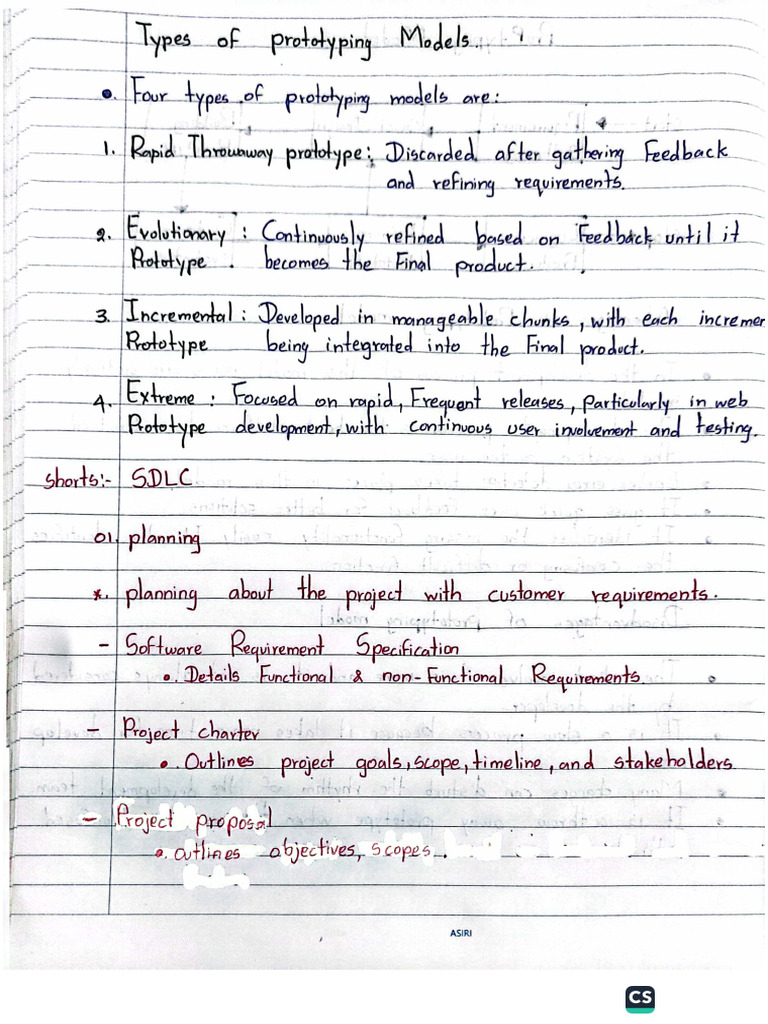 Types of prototyping Models.
Four types of prototyping models are:
1. Rapid Throwaway prototype: Discarded after gathering Feedback
and refining requirements.
2. Evolutionary : Continuously refined based on Feedback until it
Prototype . becomes the Final product.
3. Incremental : Developed in manageable chunks, with each incremen
Prototype being integrated into the Final product.
4. Extreme : Focused on rapid, Frequent releases, particularly in web
Prototype development, with continuous user involvement and testing.
shorts:- SDLC
01. planning
*. planning about the project with customer requirements.
- Software Requirement Specification
•. Details Functional & non-Functional Requirements.
- Project charter
•. Outlines project goals, scope, timeline, and stakeholders
- Project proposal
•. outlines objectives, scopes.
ASIRI
CS